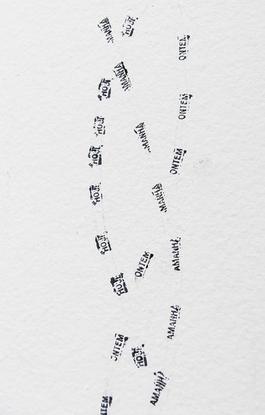 AMANHÃ
HOJE
ONTEM
HOJE
AMANHÃ
ONTEM
HOJE
AMANHÃ
HOJE
ONTEM
HOJE
AMANHÃ
HOJE
AMANHÃ
ONTEM
HOJE
AMANHÃ
ONTEM
HOJE
AMANHÃ
ONTEM